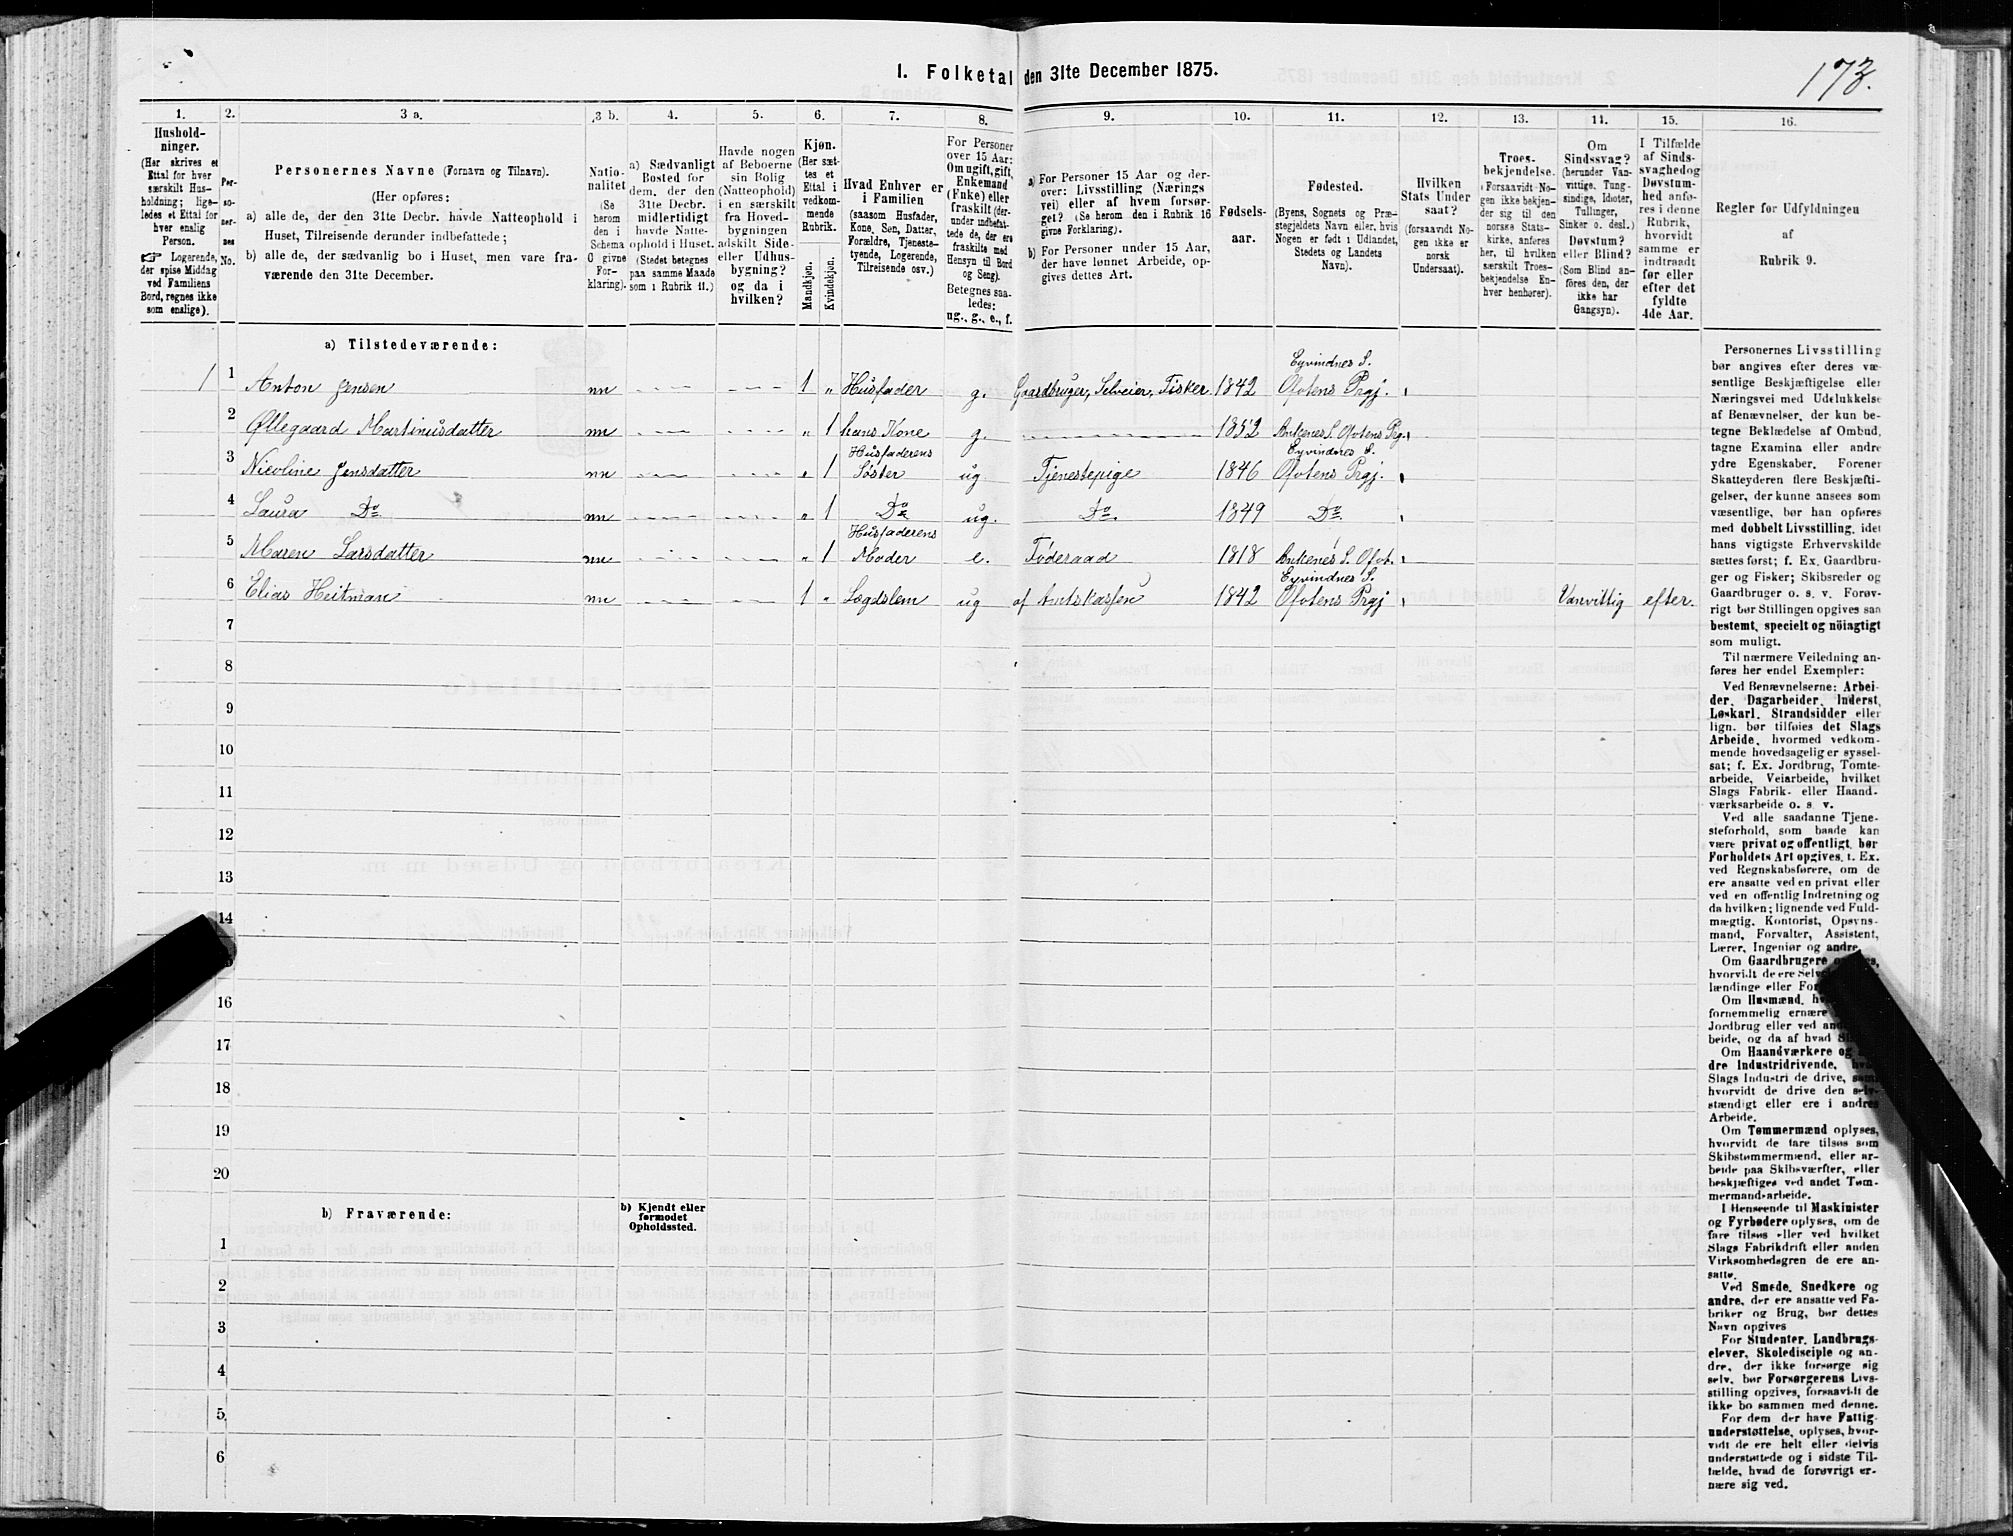 1. Folketal den 31te December 1875.
173.
1. 2. 3 a. 3 b. 4. 5. 6. 7. 8. 9. 10. 11. 12. 13. 14. 15. 16.
Hushold-
ninger.
(Her skrives et
Ettal for hver
særskilt Hus-
holdning; lige-
ledes et Ettal for
hver enslig
Person.
Logerende,
der spise Middag
ved Familiens
Bord, regnes ikke
som enslige).
Per-
so-
ner-
nes
No.
Personernes Navne (Fornavn og Tilnavn).
(Her opføres:
a) alle de, der den 31te Decbr. havde Natteophold i
Huset, Tilreisende derunder indbefattede;
b) alle de, der sædvanlig bo i Huset, men vare fra-
værende den 31te December.
Natio-
nalitet
(Se
herom
den i
Schema
O givne
For-
klaring).
a) Sædvanligt
Bosted for
dem, der den
31te Decbr.
midlertidigt
havde Natte-
ophold i Huset.
(Stedet betegnes
paa samme Maade
som i Rubrik 11.)
Havde nogen
af Beboerne
sin Bolig
(Natteophold)
i en særskilt
fra Hoved-
bygningen
adskilt Side-
eller Udhus-
bygning?
og da i
hvilken?
Kjøn.
(Her sæt-
tes et
Ettal i
vedkom-
mende
Rubrik.
Mandkjøn.
Kvindekjøn.
Hvad Enhver er
i Familien
(saasom Husfader,
Kone, Søn, Datter,
Forældre, Tjeneste-
tyende, Logerende,
Tilreisende osv.)
For Personer
over 15 Aar:
Om ugift, gift,
Enkemand
(Enke) eller
fraskilt (der-
under indbefat-
tede de, der ere
fraskilte med
Hensyn til Bord
og Seng).
Betegnes saa-
ledes:
ug., g., e., f.
a) For Personer 15 Aar og der-
over: Livsstilling (Nærings
vei) eller af hvem forsør-
get? (Se herom den i Rubrik 16
givne Forklaring).
b) For Personer under 15 Aar,
der have lønnet Arbeide, op-
gives dettes Art.
Fødsels-
aar.
Fødested.
(Byens, Sognets og Præ-
stegjeldets Navn eller, hvis
Nogen er født i Udlandet,
Stedets og Landets
Navn).
Hvilken
Stats Under
saat?
(forsaavidt No-
gen ikke er
norsk
Undersaat).
Troes-
bekjendelse.
(Forsaavidt No-
gen ikke bekjen-
der sig til den
norske Stats-
kirke, anføres
her, til hvilken
særskilt Troes-
bekjendelse En-
hver henhører).
Om
Sindssvag?
(herunder Van-
vittige, Tung-
sindige, Idioter,
Tullinger,
Sinker o. desl.)
Døvstum?
eller Blind?
(Som Blind an-
føres den, der
ikke har
Gangsyn).
I Tilfælde
af Sinds-
svaghed og
Døvstum-
hed anfø-
res i denne
Rubrik,
hvorvidt
samme er
indtraadt
før eller
efter det
fyldte
4de Aar.
Regler før Udfyldningen
af
Rubrik 9.
a) Tilstedeværende:
1 1 Anton Jensen nn 1 „ Husfader g. Gaardbruger, Selveier, Fisker 1842 Eyvindnes S. Ofotens Prgj.
2 Øllegaard Martinusdatter nn „ 1 hans Kone g. 1852 Ankenes S. Ofotens Prg.
3 Nicoline Jensdatter nn „ 1 Husfaderens Søster ug Tjenestepige 1846 Eyvindnes S. Ofotens Prgj.
4 Laura Do nn „ 1 Do ug. Do. 1849 Do
5 Maren Larsdatter nn „ 1 Husfaderens Moder e. Føderaad 1818 Ankenes S. Ofot.
6 Elias Heitman nn 1 „ Lægdslem ug af Amtskassen 1842 Eyvindnes S. Ofotens Prgj Vanvittig efter.
7
8
9
10
11
12
13
14
16
17
18
19
20
b) Fraværende:
b) Kjendt eller
formodet
Opholdssted.
1
2
3
4
5
6
Personernes Livsstilling
bør angives efter deres væ-
sentlige Beskjæftigelse eller
Næringsvei med Udelukkelse
af Benævnelser, der kun be-
tegne Beklædelse af Ombud,
tagne Examina eller andre
ydre Egenskaber. Forener
Skatteyderen flere Beskjæfti-
gelser, der kunne ansees som
væsentlige, bør han opføres
med dobbelt Livsstilling, idet
hans vigtigste Erhvervskilde
sættes først; f. Ex. Gaardbru-
ger og Fisker; Skibsreder og
Gaardbruger o. s. v. Forøv-
rigt bør Stillingen opgives saa
bestemt, specielt og nöiagtigt
som muligt.
Til nærmere Veiledning an-
føres her endel Exempler:
Ved Benævnelserne: Arbei-
der, Dagarbeider, Inderst,
Løskarl, Strandsidder eller
lign. bør tilføies det Slags
Arbeide, hvormed vedkom-
mende hovedsagelig er syssel-
sat; f. Ex. Jordbrug, Tomte-
arbeide, Veiarbeide, hvilket
Slags Fabrik- eller Haand-
værksarbeide o. s. v.
Ved alle saadanne Tjene-
steforhold, som baade kan
være privat og offentligt, bør
Forholdets Art opgives, t. Ex.
ved Regnskabsførere, om de
ere ansatte ved en privat eller
ved en offentlig Indretning og
da hvilken; lignende ved Fuld-
mægtig, Kontorist, Opsyns-
mand, Forvalter, Assistent,
Lærer, Ingeniør og andre.
Om Gaardbrugere
hvorvidt de ere
lændinge eller
Om Husmænd,
fornemmelig ernære
Jordbrug eller ved
beide, og da af hvad
Om Haandværkere og
dre Industridrivende,
Slags Industri de drive,
hvorvidt de drive den selv-
stændigt eller ere i andres
Arbeide.
Om Tømmermænd oplyses,
hvorvidt de fare tilsøs som
Skibstømmermænd, eller ar-
beide paa Skibsværfter, eller
beskjæftiges ved andet Tøm-
mermandsarbeide.
I Henseende til Maskinister
og Fyrbødere oplyses, om de
fare tilsøs eller ved hvilket
Slags Fabrikdrift eller anden
Virksomhedsgren de ere an-
satte.
Ved Smede, Snedkere og
andre, der ere ansatte ved Fa-
briker og Brug, bør dettes
Navn opgives
For Studenter, Landbrugs-
elever, Skoledisciple og an-
dre, der ikke forsørge sig
selv, bør Forsørgerens Livs-
stilling opgives, forsaavidt de
ikke bo sammen med denne.
For dem der have Fattig-
understøttelse, oplyses, hvor-
vidt de ere helt eller delvis
understøttede og i sidste Til-
fælde, hvad de forøvrigt er-
nære sig ved.